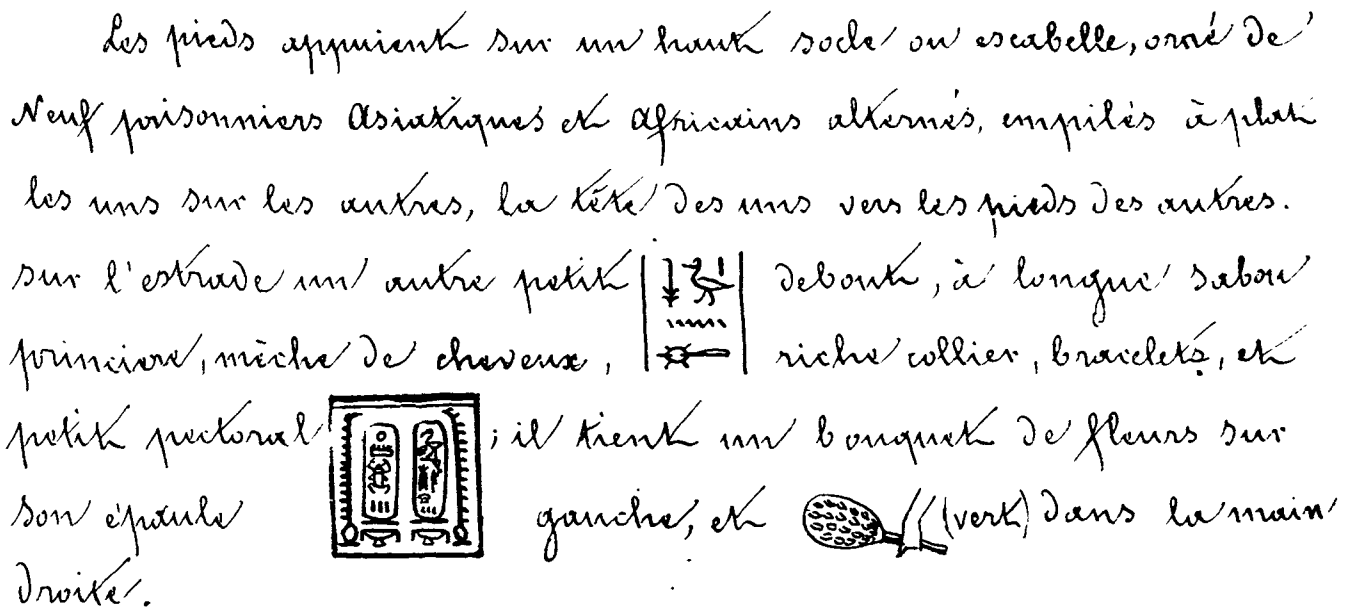 Les pieds appuient sur un haut socle ou escabelle, orné de
Neuf prisonniers Asiatiques et Africains alternés, empilés à plat
les uns sur les autres, la tête des uns vers les pieds des autres.
sur l'estrade un autre petit debout, à longue sabou
princière, mèche de cheveux, riche collier, bracelets, et
petit pectoral ; il tient un bouquet de fleurs sur
son épaule gauche, et (vert) dans la main
droite.